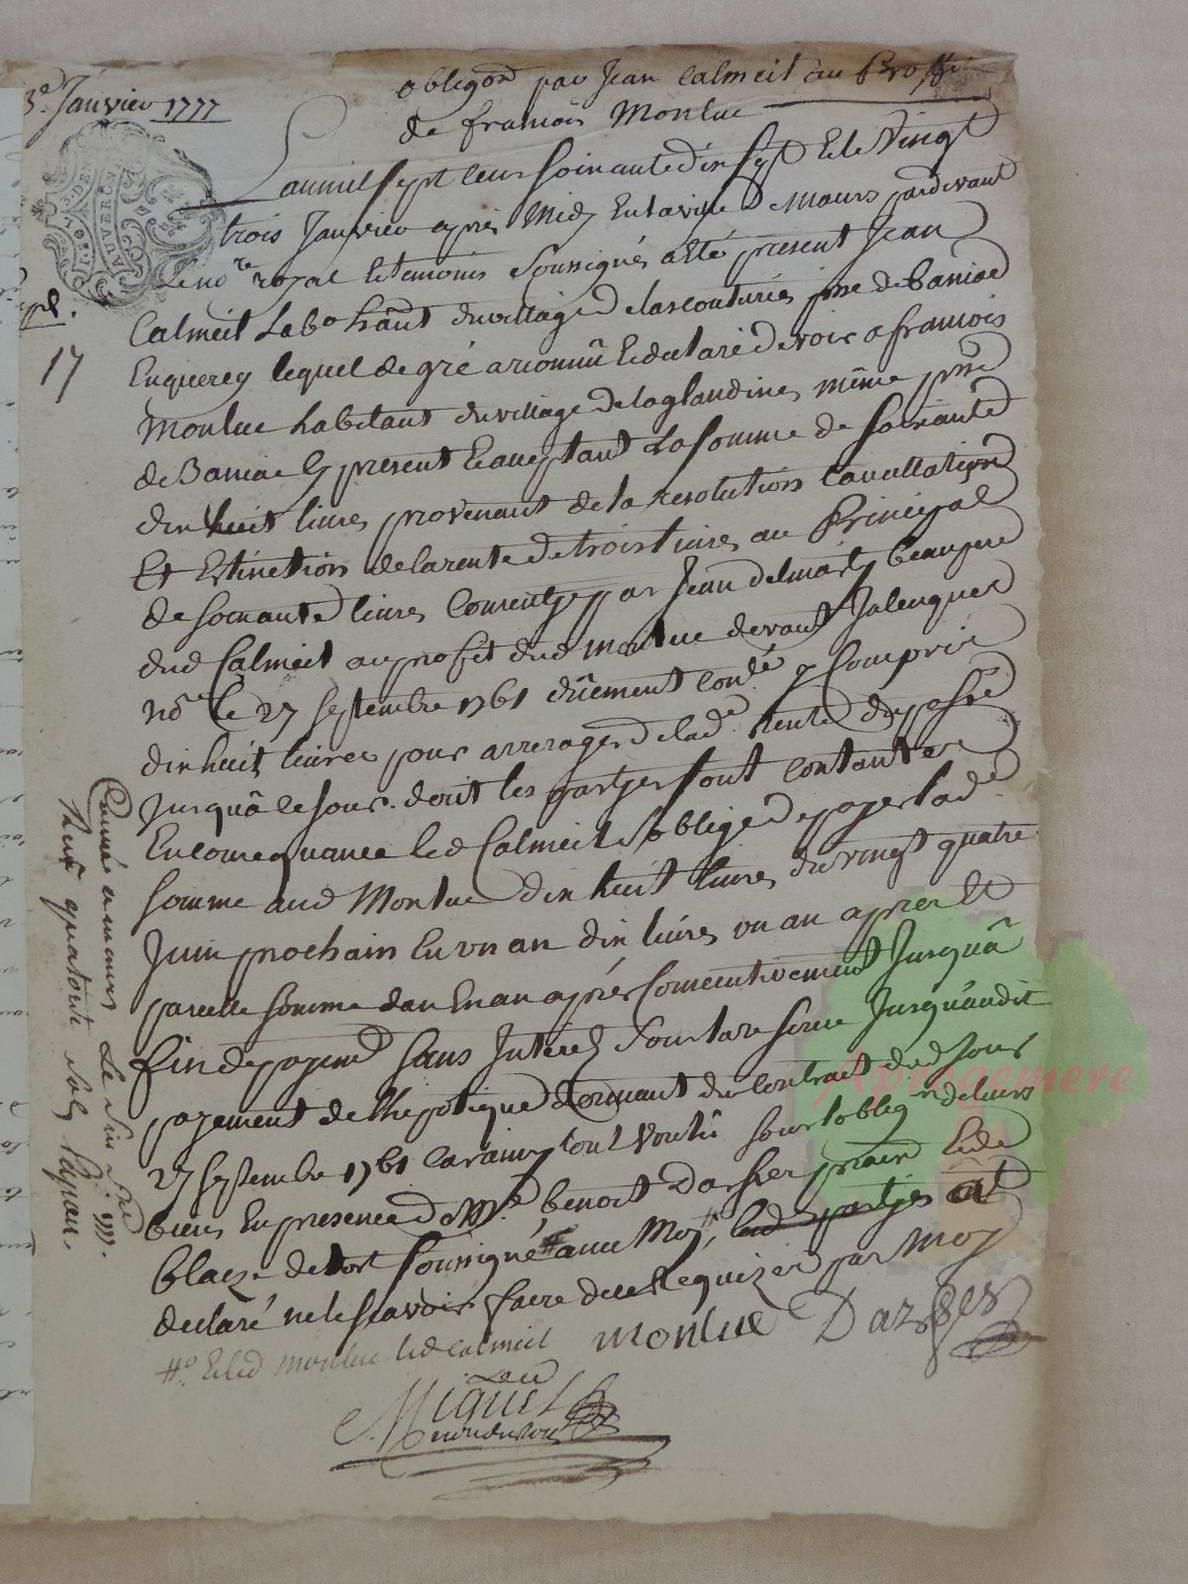 3e. Janvier 1777
obligaon par Jean Calmeil au Proffit
de francois Monluc
Lanmil sept cens soixante dix sept Et le Vingt
trois Janvier apres Midy En la ville de Maurs pardevant
le nore royal Et temoins Soussignés a Eté present Jean
Calmeil Labr hãnt du village de lascouturies psse de Baniac
En quercy lequel de gré a reconnû Et declaré devoir a francois
Monluc habitant du village de laglandines même psse
de Baniac Cy present Et acceptant La somme de soixante
dix huit livres provenant de la resolution Cancellation
Et Extinction de la rente de trois livres au Principal
de soixante livres Consentye par Jean delmas beaupere
dud Calmeil au profit dud monluc devant Jalenques
nore le 27 septembre 1761 dûement conlé y Compris
dix huit livres pour arrerages de lade rente
Jusquâ ce Jour. dont les partyes sont contantes
En consequance led Calmeil s'oblige de payer lade
somme aud Monluc dix huit livres du vingt quatre
Juin prochain En un an dix livres un an apres Et
pareille somme dan En an après Consecutivement Jusquâ
fin de payemt sans Interet Sous la reserve Jusqu'audit
payement de lhypotique du contract dud Jour
27 septembre 1761 Car ainsy lont Voulû sous lobligon de leurs
biens En presence de Mre benoit Et de
blaize soussigné # avec Moy, led partyes ont
declaré ne le scavoir faire de ce Requizes par moy
#o Et led monluc led calmeil
monluc
Miquel
pl.
17
AUVERGNE
Connlé a maurs Le six fer 1777.
Recu quatorze sols
Aprogemere